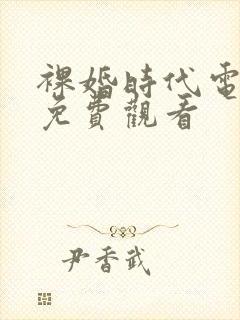 裸婚時代電
免費觀看
尹香武